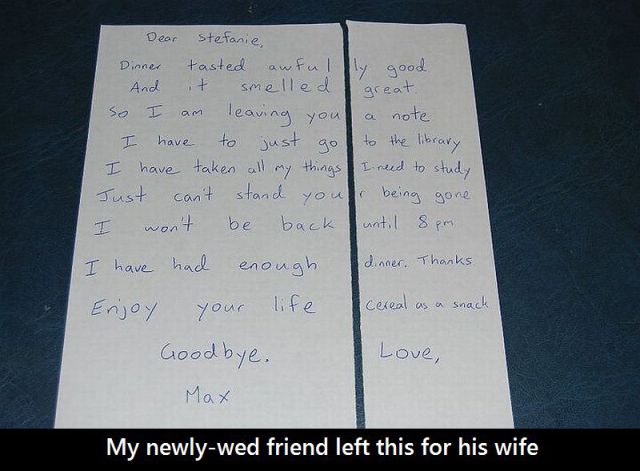 Dear Stefanie,
Dinner tasted awfully good
And it smelled great
So I am leaving you a note
I have to just go to the library
I have taken all my things I need to study
Just can't stand your being gone
I won't be back until 8 pm
I have had enough dinner. Thanks
Enjoy your life cereal as a snack
Goodbye. Love,
Max
My newly-wed friend left this for his wife